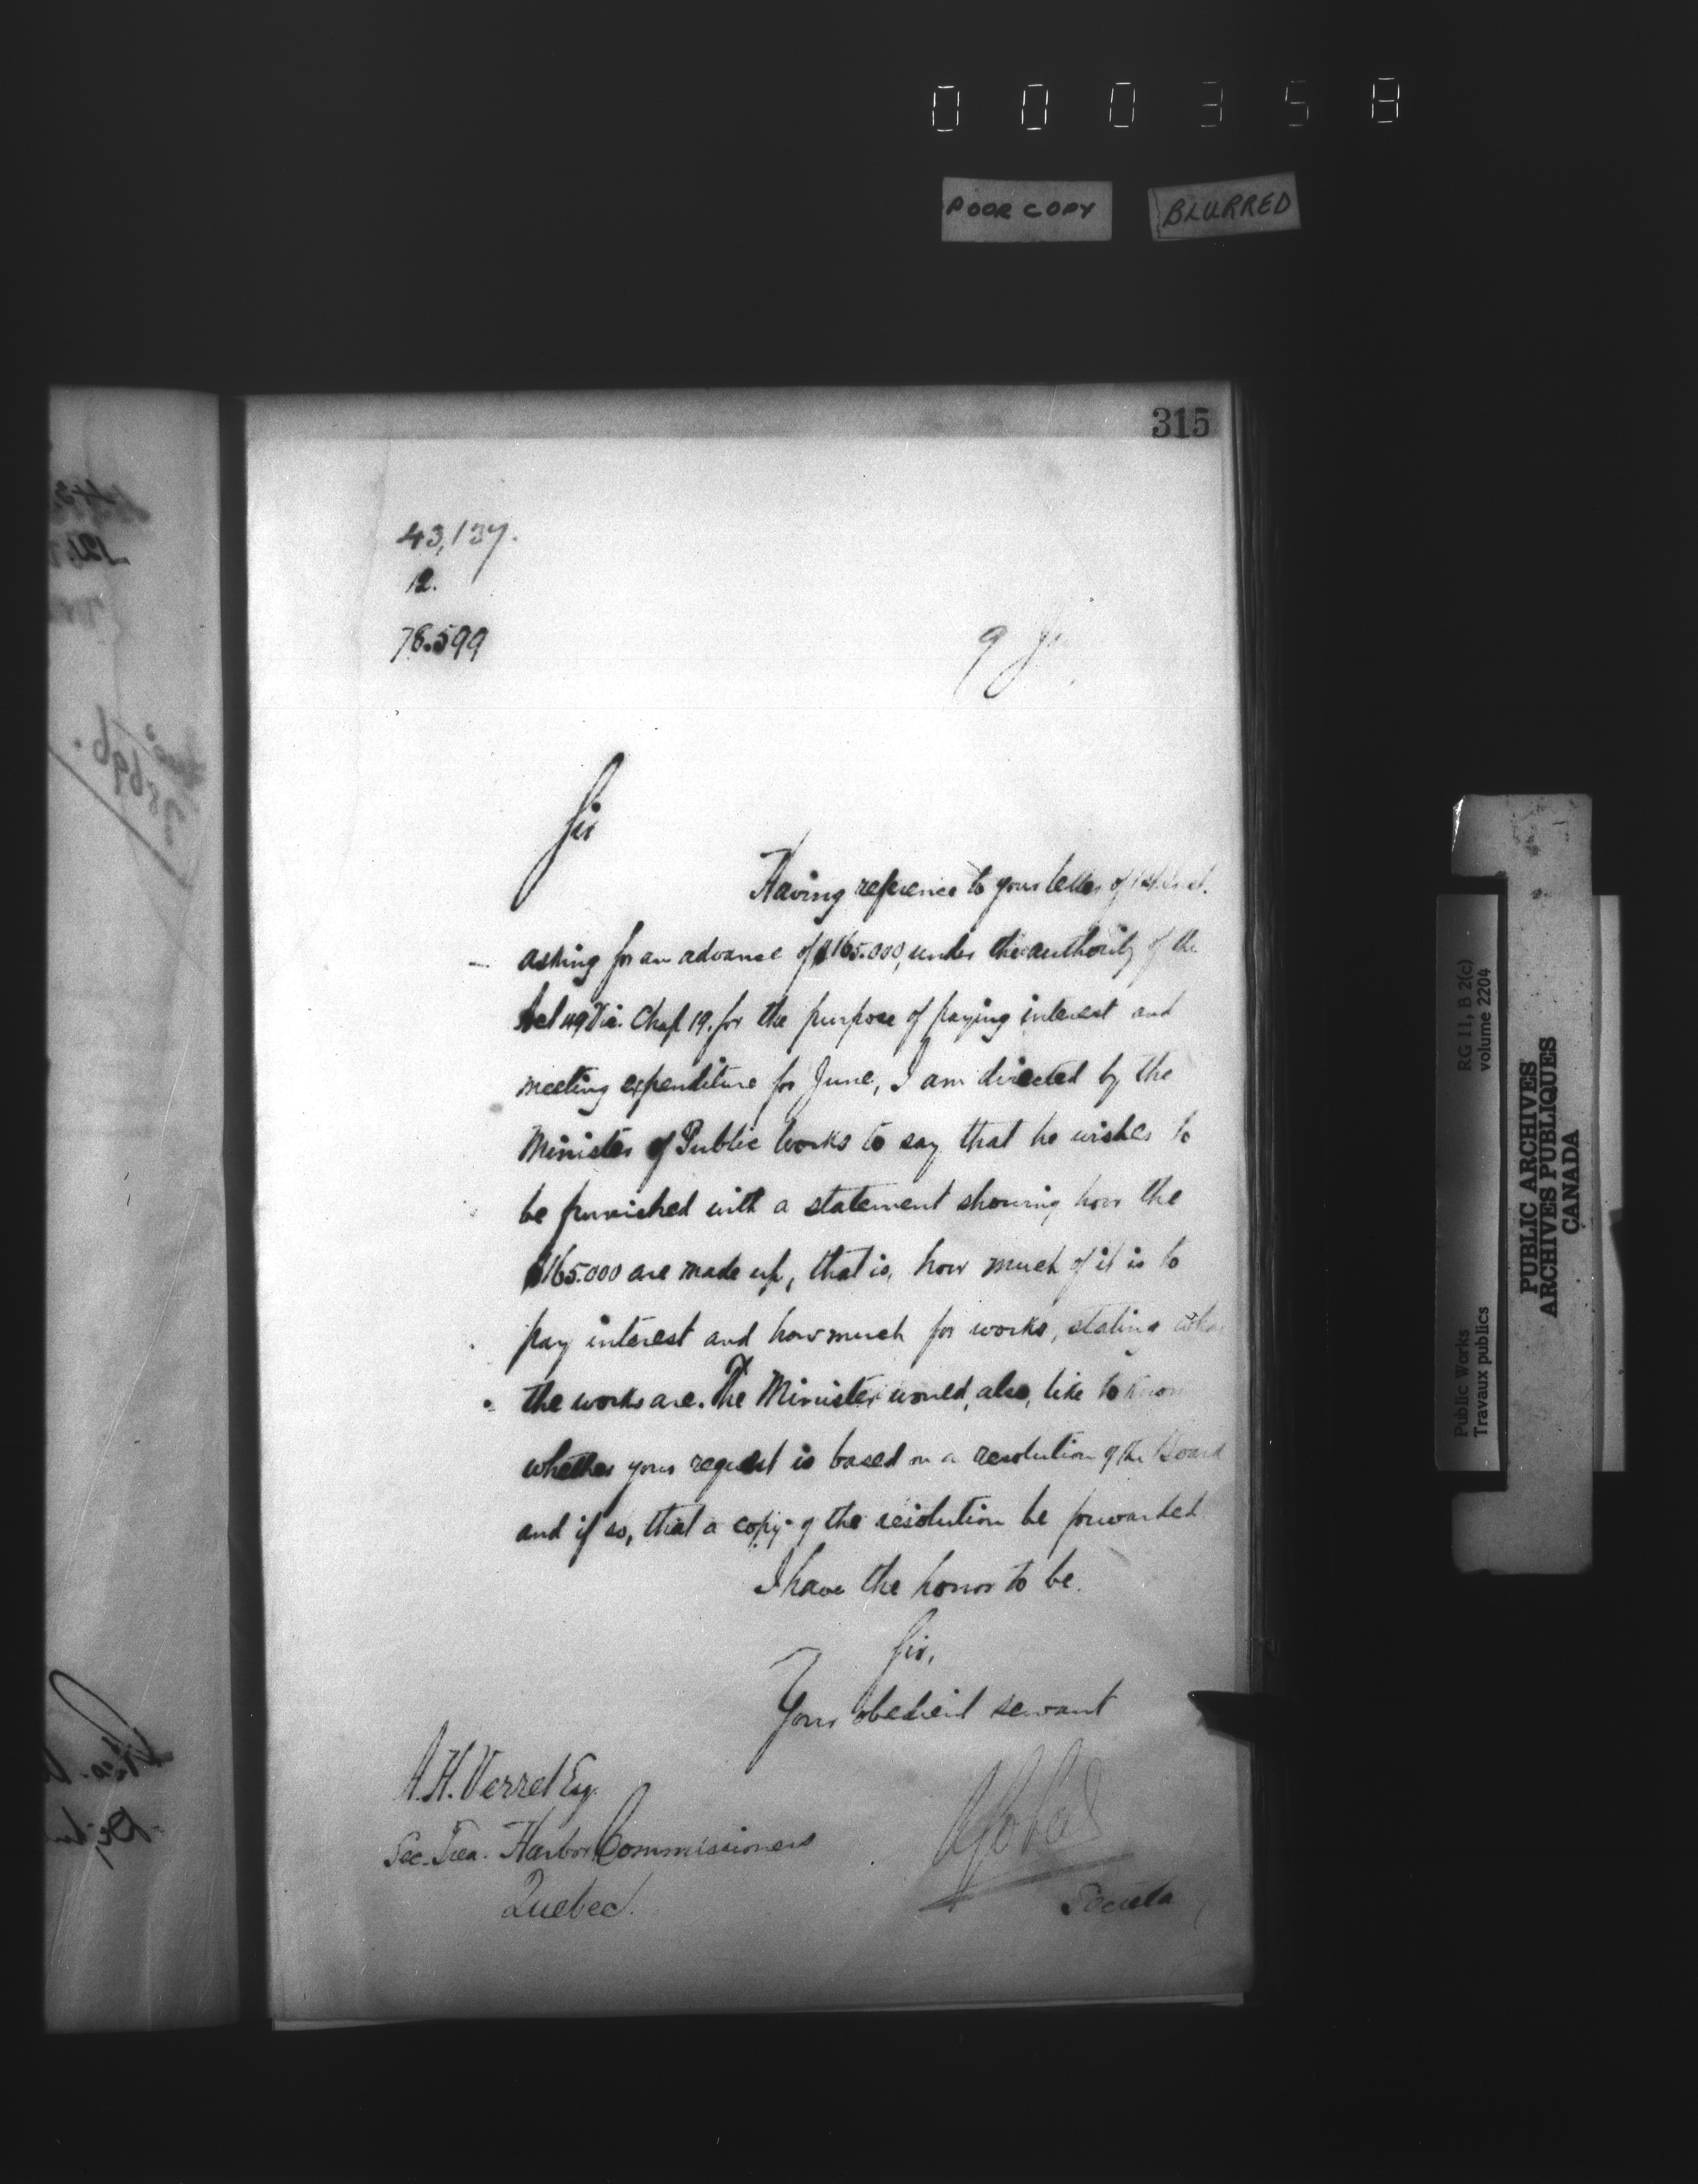 000358
POOR COPY
BLURRED
315
43,137.
12.
78.599
9 Ju
Sir
Having reference to your letter of 1st. inst.
asking for an advance of $165.000, under the authority of the
Act 49 Vic. Chap 19. for the purpose of paying interest and
meeting expenditure for June, I am directed by the
Minister of Public Works to say that he wishes to
be furnished with a statement showing how the
$165.000 are made up, that is, how much of it is to
pay interest and how much for works, stating what
the works are. The Minister would, also, like to know
whether your request is based on a resolution of the Board
and if so, that a copy of the resolution be forwarded.
I have the honor to be.
Sir,
Your obedient servant
A. H. Verret Esq.
Sec. Trea. Harbor Commissioners
Quebec.
Secreta
RG 11, B 2(c)
volume 2204
Public Works
Travaux publics
PUBLIC ARCHIVES
ARCHIVES PUBLIQUES
CANADA